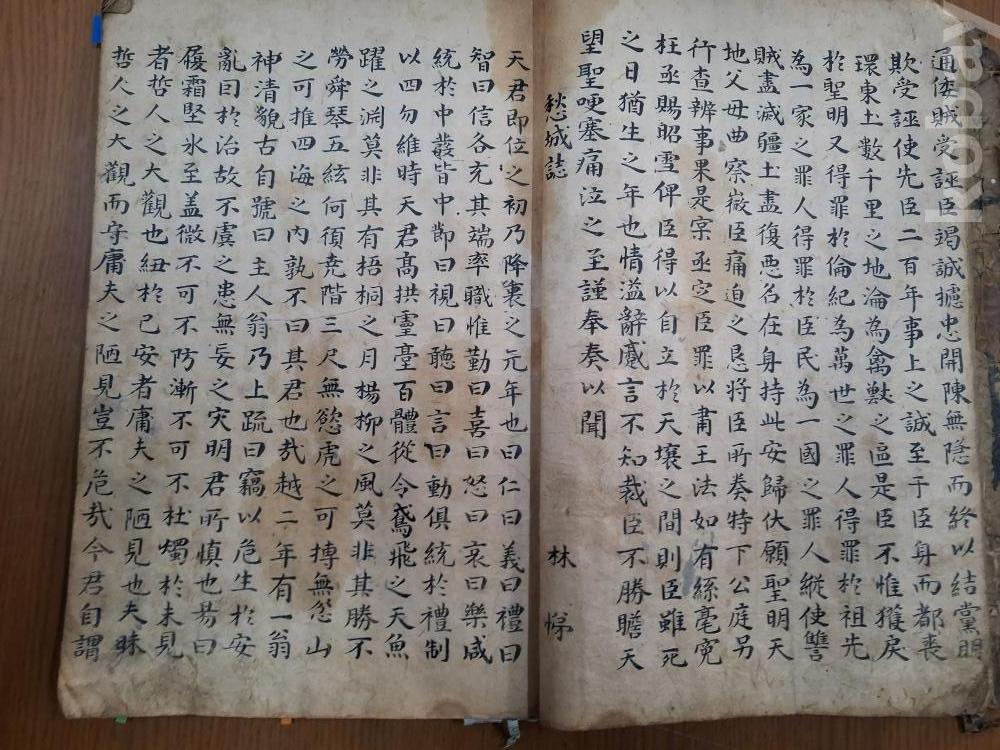 通倭賊受誣臣竭誠攄忠開陳無隱而終以結黨明
欺受誣使先臣二百年事上之誠至于臣身而都喪
環東土數千里之地淪為禽獸之區是臣不惟獲戾
於聖明又得罪於倫紀為萬世之罪人得罪於祖先
為一家之罪人得罪於臣民為一國之罪人縱使讐
賊盡滅疆土盡復惡名在身持此安歸伏願聖明天
地父母曲察微臣痛迫之恳將臣所奏特下公庭另
行查辨事果是㝎亟㝎臣罪以肅王法如有絲毫寃
枉亟賜昭雪俾臣得以自立於天壤之間則臣雖死
之日猶生之年也情溢辭蹙言不知裁臣不勝瞻天
望聖哽塞痛泣之至謹奉奏以聞
愁城誌 林悌
天君即位之初乃降衷之元年也曰仁曰義曰禮曰
智曰信各充其端率職惟勤曰喜曰怒曰哀曰樂咸
統於中發皆中節曰視曰聽曰言曰動俱統於禮制
以四勿維時天君高拱靈臺百體從令鳶飛之天魚
躍之淵莫非其有梧桐之月楊柳之風莫非其勝不
勞舜琴五絃何須堯階三尺無慾虎之可摶無忿山
之可摧四海之內孰不曰其君也哉越二年有一翁
神清貌古自號曰主人翁乃上疏曰竊以危生於安
亂曰於治故不虞之患無妄之灾明君所慎也易曰
履霜堅氷至盖微不可不防漸不可不杜燭於未見
者哲人之大觀也紐於已安者庸夫之陋見也夫昧
哲人之大觀而守庸夫之陋見豈不危哉今君自謂
kobay